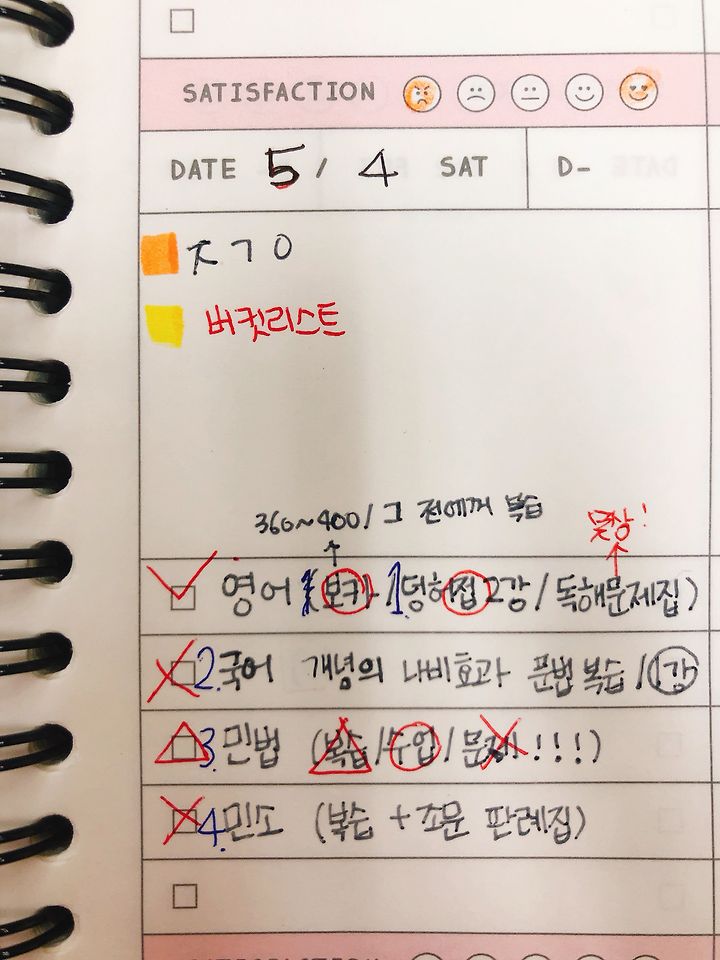 SATISFACTION
DATE 5 / 4 SAT D-
ㅊㄱㅇ
버킷리스트
360~400 / 그 전에꺼 복습
못함!
영어 (보카 / 1. 덩어접 2강 / 독해문제집)
2. 국어 개념의 나비효과 문법 복습 / 1강
3. 민법 (복습 / 수업 / 문제!!!!)
4. 민소 (복습 + 조문 판례집)
SATISFACTION